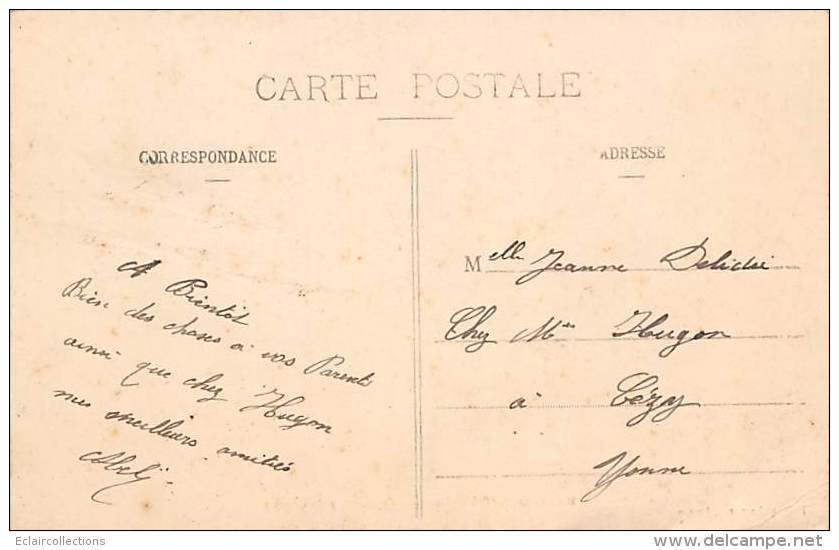 CARTE POSTALE
CORRESPONDANCE
ADRESSE
A Bientôt
Bien des choses à vos Parents
ainsi que chez Hugon
mes meilleurs amitiés
Melle Jeanne
Chez Mme Hugon
à Cézy
Yonne
Eclaircollections
delcampe.net